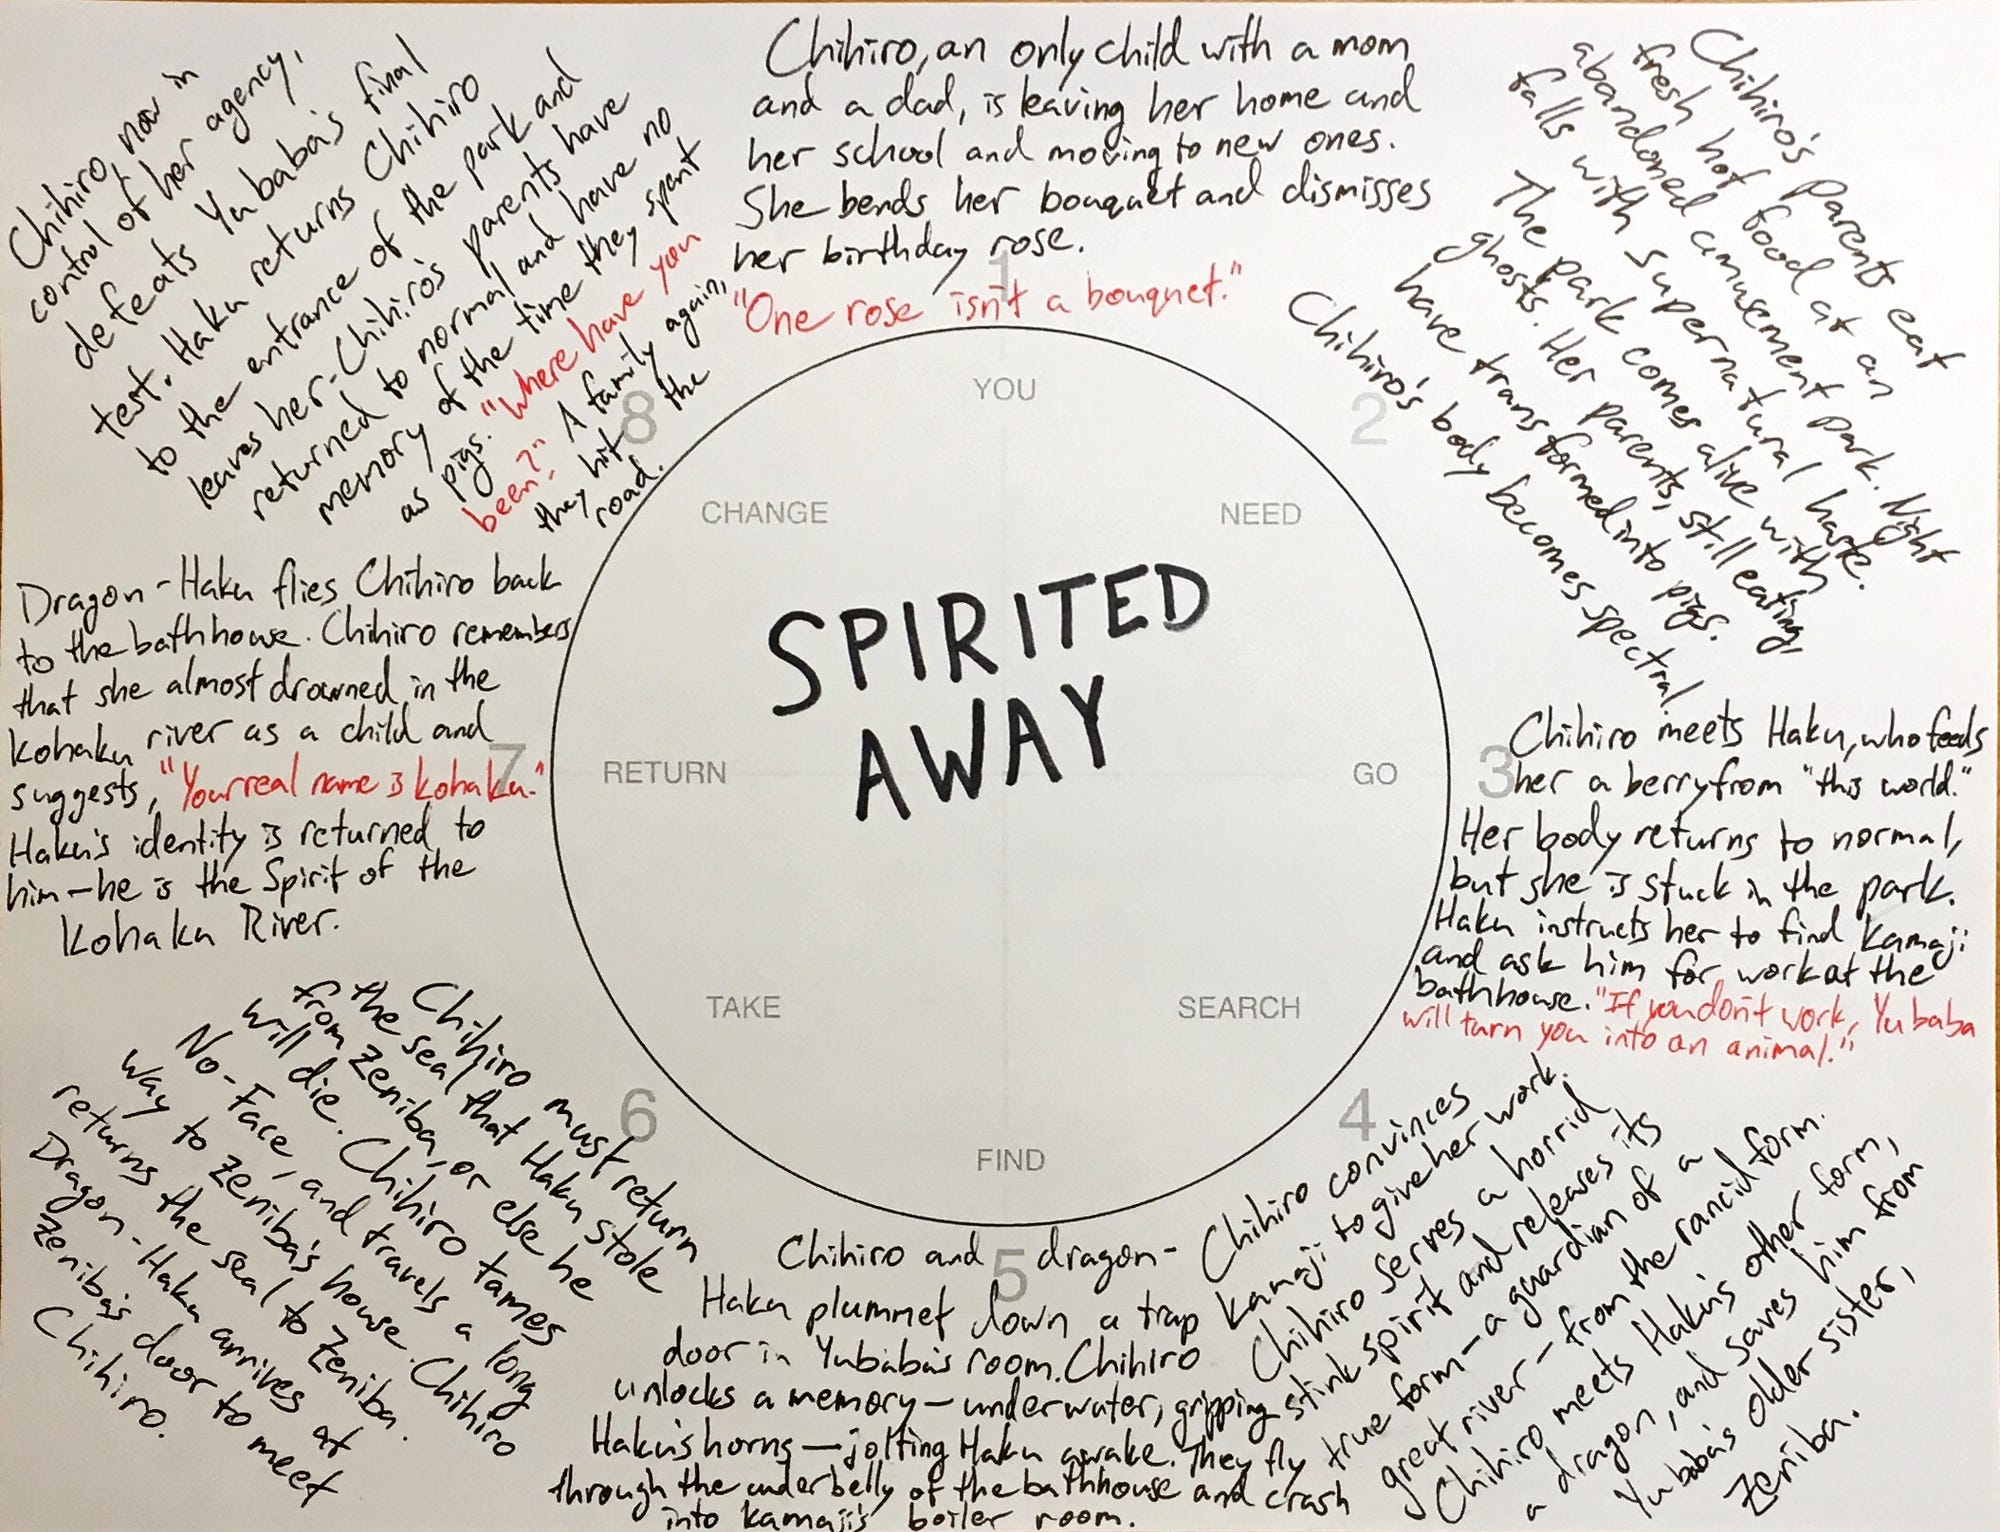 Chihiro, an only child with a mom
and a dad, is leaving her home and
her school and moving to new ones.
She bends her bouquet and dismisses
her birthday rose.
1
"One rose isn't a bouquet."
YOU
Chihiro's parents eat
fresh hot food at an
abandoned amusement park. Night
falls with supernatural haste.
The park comes alive with
ghosts. Her parents, still eating,
have transformed into pigs.
Chihiro's body becomes spectral.
2
NEED
Chihiro meets Haku, who feeds
3
her a berry from "this world."
Her body returns to normal,
but she is stuck in the park.
Haku instructs her to find Kamaji
and ask him for work at the
bathhouse. "If you don't work, Yubaba
will turn you into an animal."
GO
4
SEARCH
Chihiro convinces
Kamaji to give her work.
Chihiro serves a horrid
stink spirit and releases its
true form - a guardian of a
great river - from the rancid form.
Chihiro meets Haku's other form,
a dragon, and saves him from
Yubaba's older sister,
Zeniba.
FIND
5
Chihiro and dragon-
Haku plummet down a trap
door in Yubaba's room. Chihiro
unlocks a memory - underwater, gripping
Haku's horns - jolting Haku awake. They fly
through the underbelly of the bathhouse and crash
into Kamaji's boiler room.
TAKE
6
Chihiro must return
the seal that Haku stole
from Zeniba, or else he
will die. Chihiro tames
No-Face, and travels a long
way to Zeniba's house. Chihiro
returns the seal to Zeniba.
Dragon-Haku arrives at
Zeniba's door to meet
Chihiro.
RETURN
7
Dragon-Haku flies Chihiro back
to the bathhouse. Chihiro remembers
that she almost drowned in the
Kohaku river as a child and
suggests, "Your real name is Kohaku."
Haku's identity is returned to
him - he is the Spirit of the
Kohaku River.
CHANGE
8
Chihiro, now in
control of her agency,
defeats Yubaba's final
test. Haku returns Chihiro
to the entrance of the park and
leaves her. Chihiro's parents have
returned to normal and have no
memory of the time they spent
as pigs. "Where have you
been?" A family again,
they hit the
road.
SPIRITED
AWAY